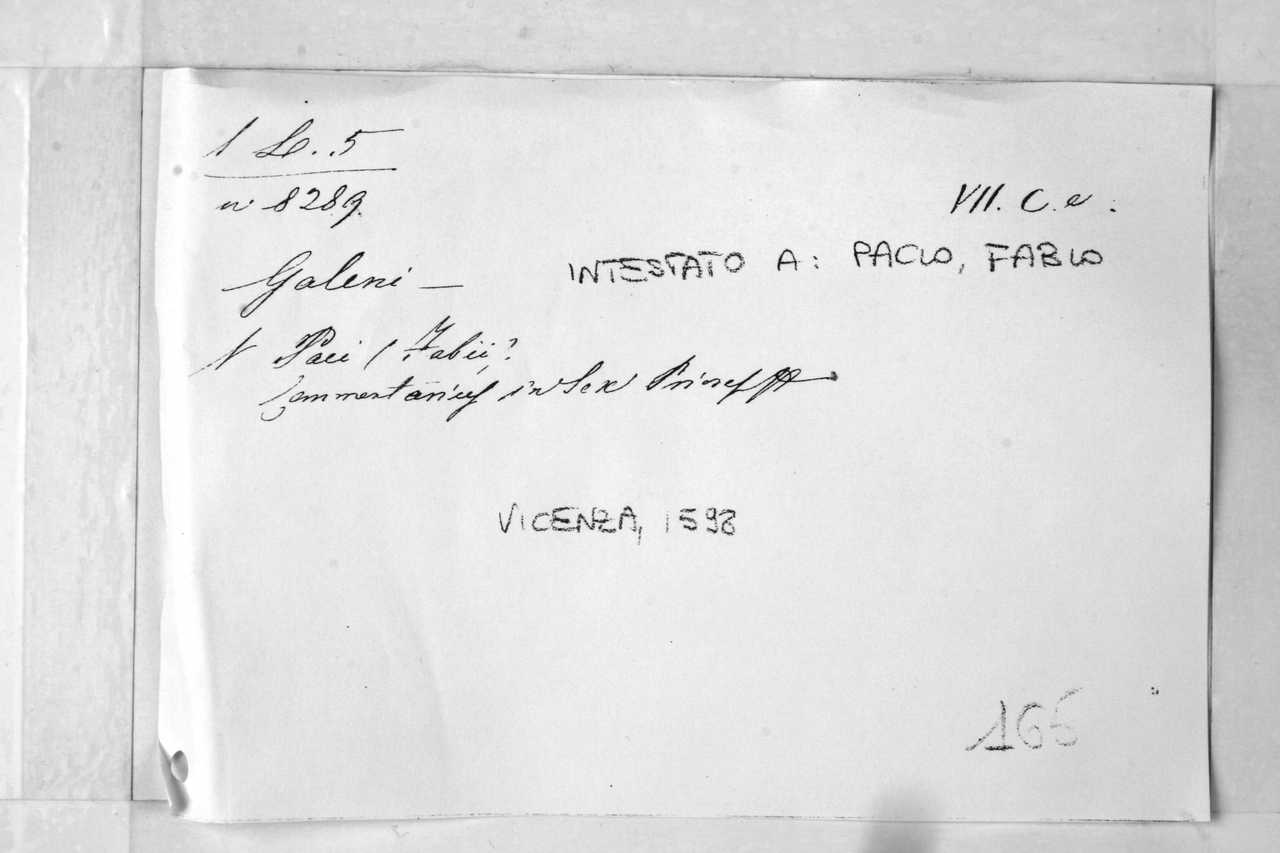 1 L. 5
n 8289.
VII. C. e.
Galeni —
INTESTATO A: PACIO, FABIO
Paci (Fabii)
Commentarius in Sex Priores
VICENZA, 1598
165